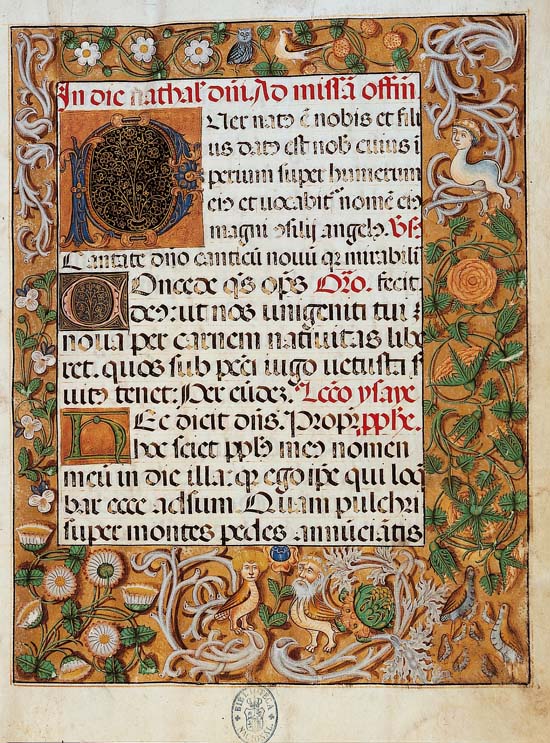 In die nathal' dñi. Ad missã offiñ.
Uer natꝰ ẽ nobis et fili
us datꝰ est nob' cuius ĩ
perium super humerum
eiꝰ et uocabit' nomẽ eiꝰ
magni ꝯsilij angelꝰ. Vs'.
Cantate dño canticũ nouũ qr mirabili'
Oncede qs̃ op̃s Or̃o. fecit.
deꝰ: ut nos unigeniti tui
noua per carnem natiuitas libe
ret. quos sub pc̃ci iugo uetusta
uitꝰ tenet: Per eũdeꝫ. Lec̃o ysaye
Ec dicit dñs. Propt' pp̃he.
hoc sciet pp̃ls meꝰ nomen
meũ in die illa: qr ego ip̃e qui loq̃
bar ecce adsum. Quam pulchri
super montes pedes annũciãtis
BIBLIOTECA NACIONAL